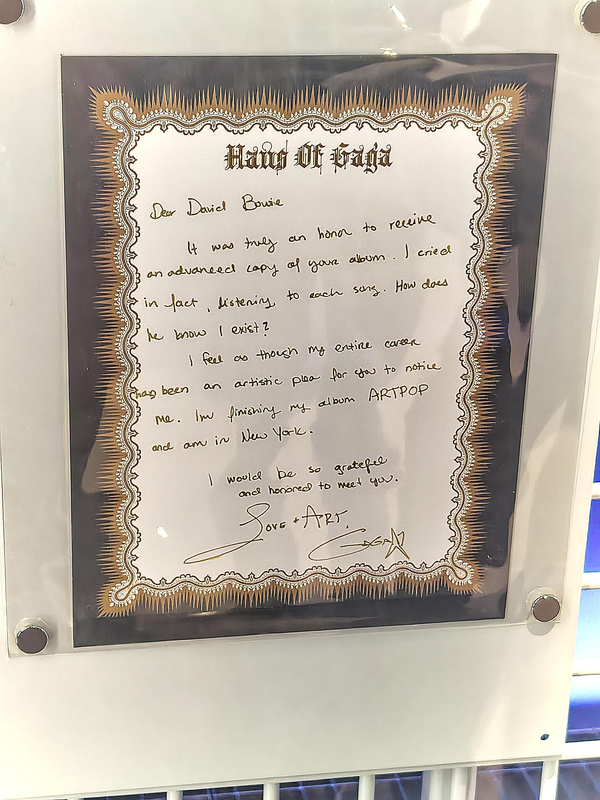 Haus Of Gaga
Dear David Bowie
It was truly an honor to receive
an advanced copy of your album. I cried
in fact, listening to each song. How does
he know I exist?
I feel as though my entire career
has been an artistic plea for you to notice
me. Im finishing my album ARTPOP
and am in New York.
I would be so grateful
and honored to meet you.
Love + ART,
GAGA